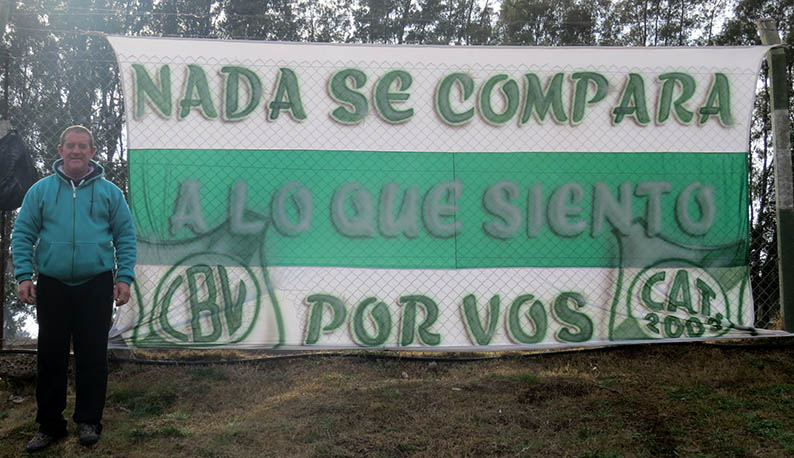 NADA SE COMPARA
A LO QUE SIENTO
POR VOS
CBV
CAT
2003